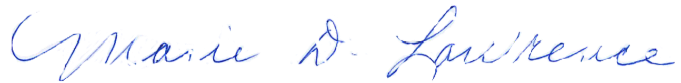 Marie D. Lawrence